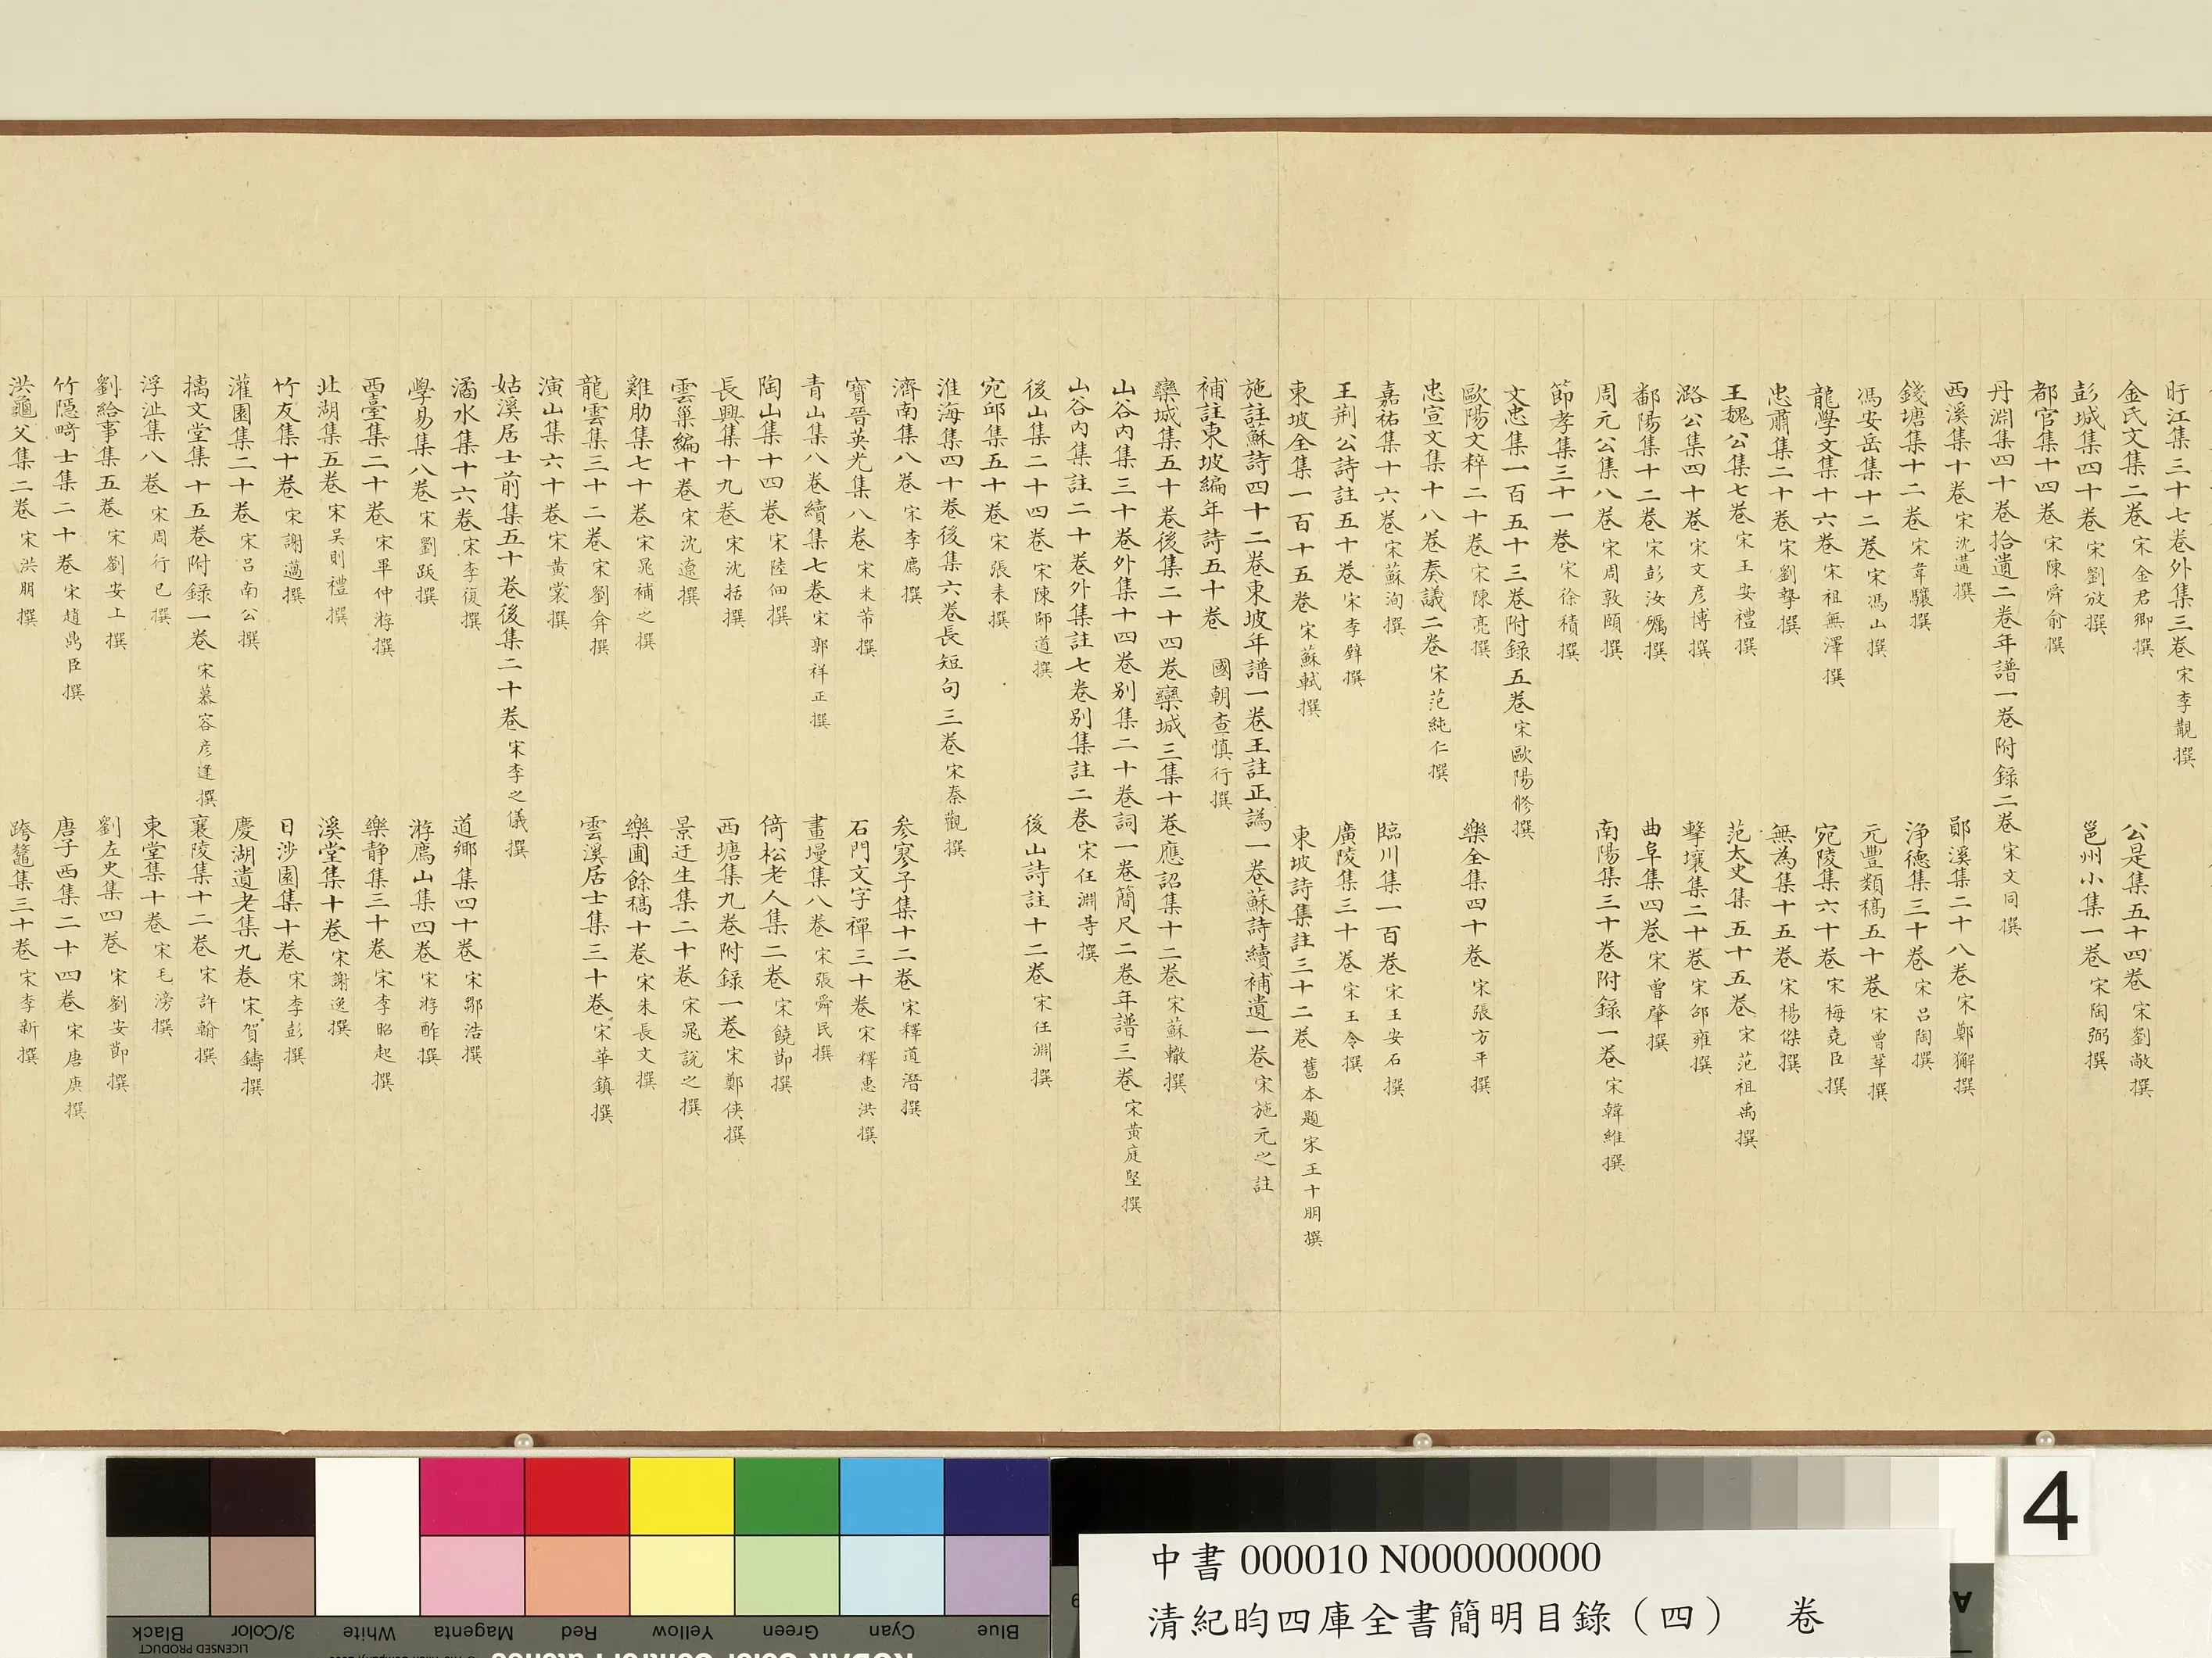 盱江集三十七卷外集三卷 宋李覯撰
金氏文集二卷 宋金君卿撰 公是集五十四卷 宋劉敞撰
彭城集四十卷 宋劉攽撰 邕州小集一卷 宋陶弼撰
都官集十四卷 宋陳舜俞撰
丹淵集四十卷拾遺二卷年譜一卷附錄二卷 宋文同撰
西溪集十卷 宋沈遘撰 鄖溪集二十八卷 宋鄭獬撰
錢塘集十二卷 宋韋驤撰 淨德集三十卷 宋呂陶撰
馮安岳集十二卷 宋馮山撰 元豐類稿五十卷 宋曾鞏撰
龍學文集十六卷 宋祖無澤撰 宛陵集六十卷 宋梅堯臣撰
忠肅集二十卷 宋劉摯撰 無為集十五卷 宋楊傑撰
王魏公集七卷 宋王安禮撰 范太史集五十五卷 宋范祖禹撰
潞公集四十卷 宋文彥博撰 擊壤集二十卷 宋邵雍撰
鄱陽集十二卷 宋彭汝礪撰 曲阜集四卷 宋曾肇撰
周元公集八卷 宋周敦頤撰 南陽集三十卷附錄一卷 宋韓維撰
節孝集三十一卷 宋徐積撰
文忠集一百五十三卷附錄五卷 宋歐陽修撰
歐陽文粹二十卷 宋陳亮撰 樂全集四十卷 宋張方平撰
忠宣文集十八卷奏議二卷 宋范純仁撰
嘉祐集十六卷 宋蘇洵撰 臨川集一百卷 宋王安石撰
王荆公詩註五十卷 宋李壁撰 廣陵集三十卷 宋王令撰
東坡全集一百十五卷 宋蘇軾撰 東坡詩集註三十二卷 舊本題宋王十朋撰
施註蘇詩四十二卷東坡年譜一卷王註正譌一卷蘇詩續補遺一卷 宋施元之註
補註東坡編年詩五十卷 國朝查慎行撰
欒城集五十卷後集二十四卷欒城三集十卷應詔集十二卷 宋蘇轍撰
山谷內集三十卷外集十四卷别集二十卷詞一卷簡尺二卷年譜三卷 宋黃庭堅撰
山谷內集註二十卷外集註七卷别集註二卷 宋任淵等撰
後山集二十四卷 宋陳師道撰 後山詩註十二卷 宋任淵撰
宛邱集五十卷 宋張耒撰
淮海集四十卷後集六卷長短句三卷 宋秦觀撰
濟南集八卷 宋李廌撰 參寥子集十二卷 宋釋道潛撰
寶晉英光集八卷 宋米芾撰 石門文字禪三十卷 宋釋惠洪撰
青山集八卷續集七卷 宋郭祥正撰 畫墁集八卷 宋張舜民撰
陶山集十四卷 宋陸佃撰 倚松老人集二卷 宋饒節撰
長興集十九卷 宋沈括撰 西塘集九卷附錄一卷 宋鄭俠撰
雲巢編十卷 宋沈遼撰 景迂生集二十卷 宋晁說之撰
雞肋集七十卷 宋晁補之撰 樂圃餘稿十卷 宋朱長文撰
龍雲集三十二卷 宋劉弇撰 雲溪居士集三十卷 宋華鎮撰
演山集六十卷 宋黃裳撰
姑溪居士前集五十卷後集二十卷 宋李之儀撰
潏水集十六卷 宋李復撰 道鄉集四十卷 宋鄒浩撰
學易集八卷 宋劉跂撰 游廌山集四卷 宋游酢撰
西臺集二十卷 宋畢仲游撰 樂靜集三十卷 宋李昭玘撰
北湖集五卷 宋吳則禮撰 溪堂集十卷 宋謝逸撰
竹友集十卷 宋謝薖撰 日涉園集十卷 宋李彭撰
灌園集二十卷 宋呂南公撰 慶湖遺老集九卷 宋賀鑄撰
摛文堂集十五卷附錄一卷 宋慕容彥逢撰 襄陵集十二卷 宋許翰撰
浮沚集八卷 宋周行己撰 東堂集十卷 宋毛滂撰
劉給事集五卷 宋劉安上撰 劉左史集四卷 宋劉安節撰
竹隱畸士集二十卷 宋趙鼎臣撰 唐子西集二十四卷 宋唐庚撰
洪龜父集二卷 宋洪朋撰 跨鼇集三十卷 宋李新撰
4
中書 000010 N000000000
清紀昀四庫全書簡明目錄（四） 卷
Black 3/Color White Magenta Red Yellow Green Cyan Blue
LICENSED PRODUCT
A